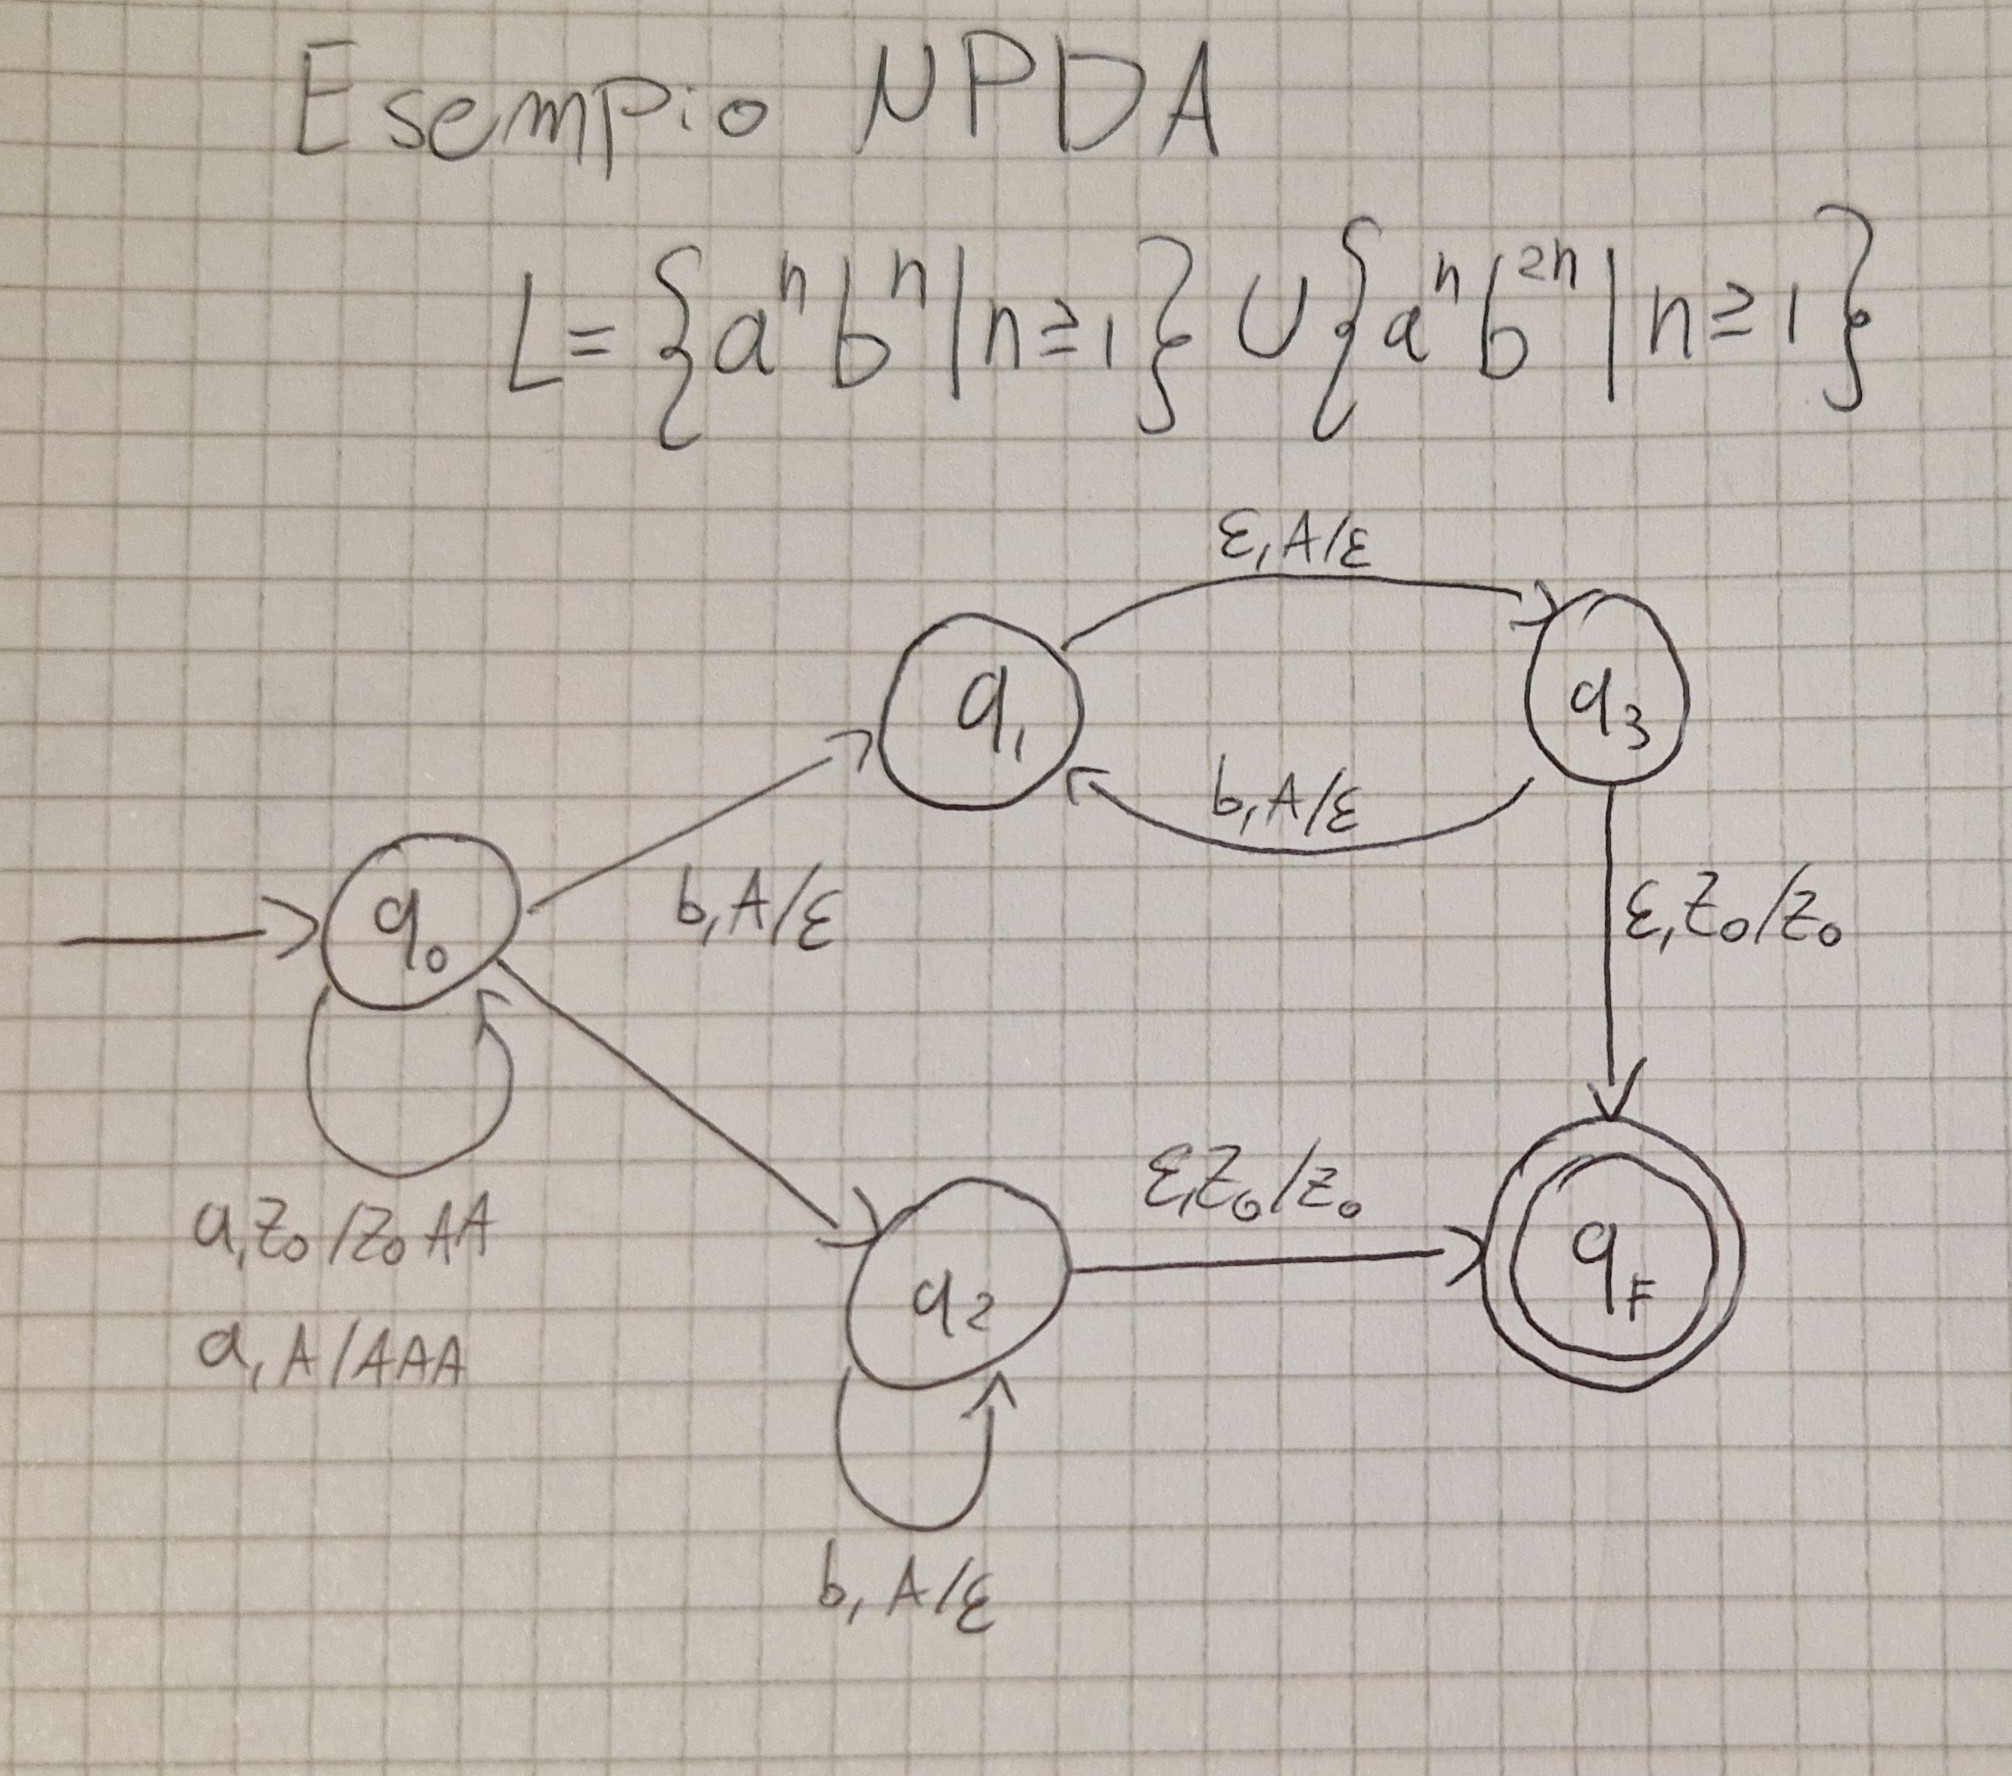 Esempio NPDA
L={aⁿbⁿ|n≥1}∪{aⁿb²ⁿ|n≥1}
ε,A/ε
q₁
q₃
b,A/ε
q₀
b,A/ε
ε,Z₀/Z₀
a,Z₀/Z₀AA
a,A/AAA
ε,Z₀/Z₀
q₂
q_F
b,A/ε